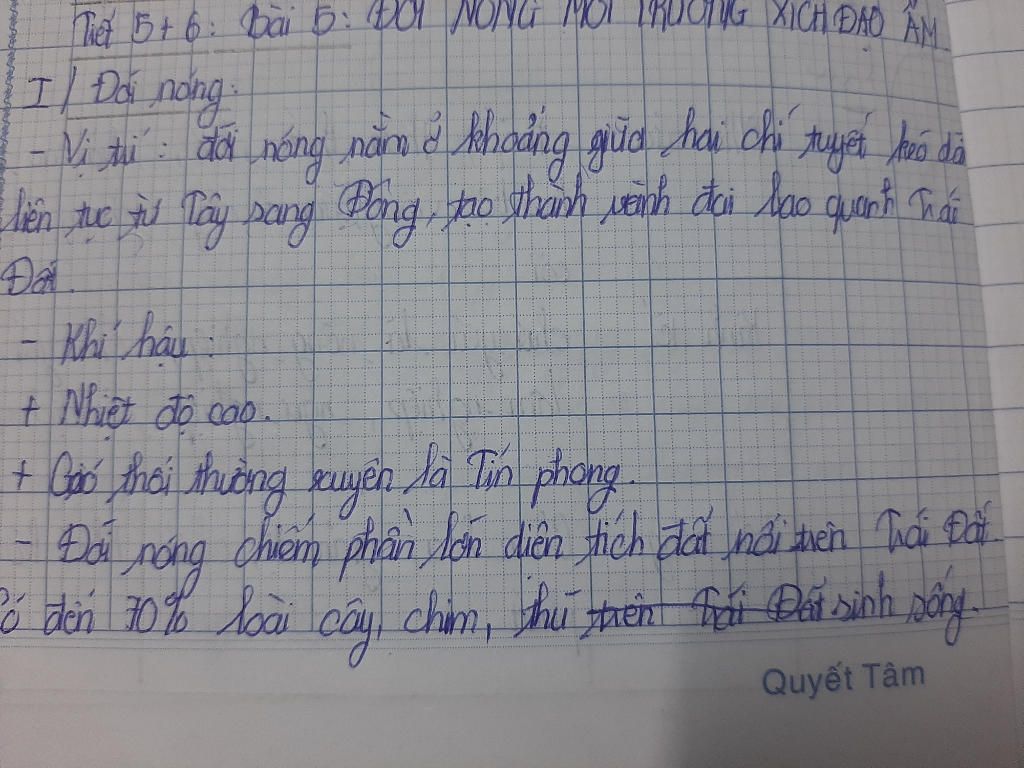 Tiết 5+6: Bài 5: ĐỚI NÓNG MÔI TRƯỜNG XÍCH ĐẠO ẨM
I/ Đới nóng:
- Vị trí: đới nóng nằm ở khoảng giữa hai chí tuyến kéo dà
liên tục từ Tây sang Đông, tạo thành vành đai bao quanh Trái
Đất.
- Khí hậu:
+ Nhiệt độ cao.
+ Gió thổi thường xuyên là Tín phong.
- Đới nóng chiếm phần lớn diện tích đất nổi trên Trái Đất.
ó đến 70% loài cây, chim, thú trên Trái Đất sinh sống.
Quyết Tâm